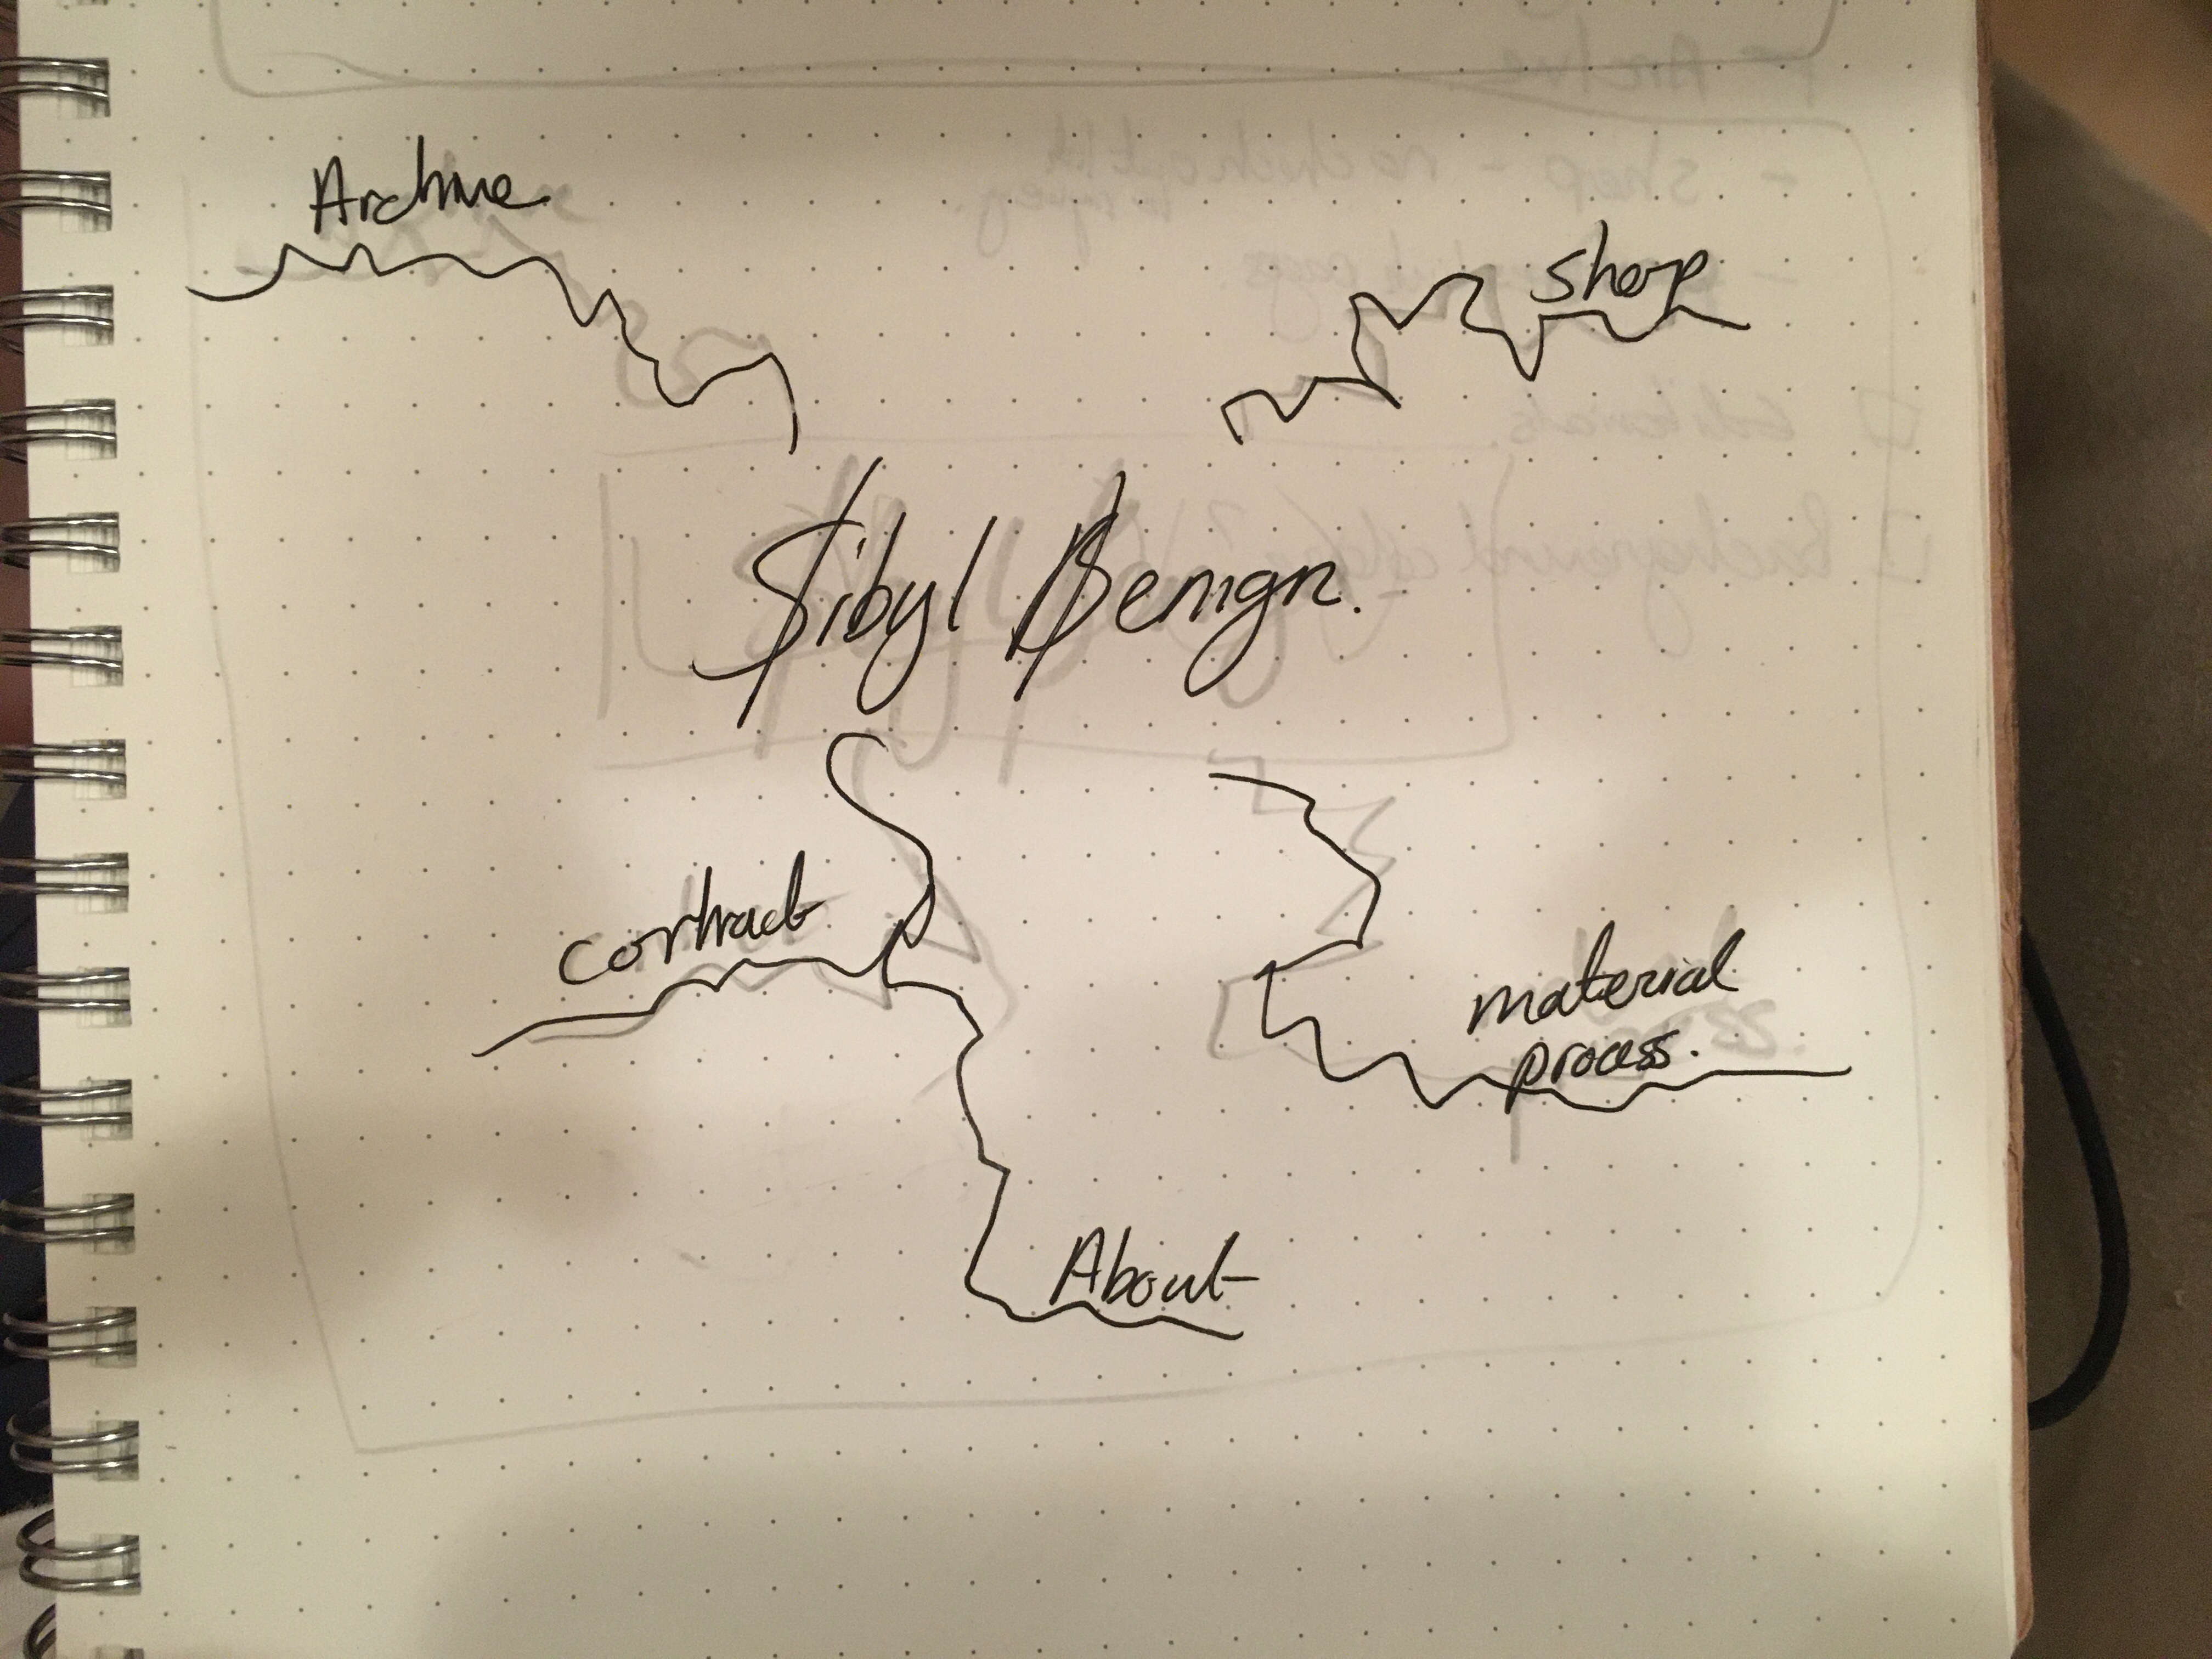 Archive
shop
Sibyl Benign.
contract
material
process.
About